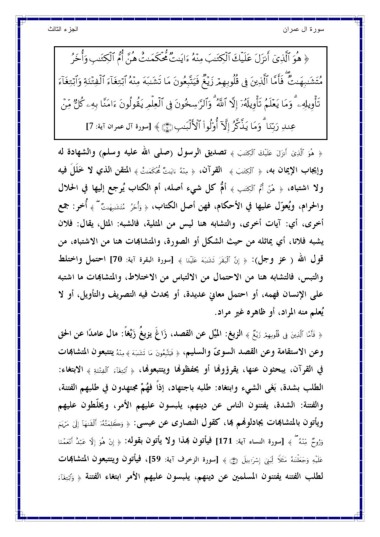 سورة آل عمران
الجزء الثالث
﴿ هُوَ ٱلَّذِىٓ أَنزَلَ عَلَيْكَ ٱلْكِتَٰبَ مِنْهُ ءَايَٰتٌ مُّحْكَمَٰتٌ هُنَّ أُمُّ ٱلْكِتَٰبِ وَأُخَرُ
مُتَشَٰبِهَٰتٌ ۖ فَأَمَّا ٱلَّذِينَ فِى قُلُوبِهِمْ زَيْغٌ فَيَتَّبِعُونَ مَا تَشَٰبَهَ مِنْهُ ٱبْتِغَآءَ ٱلْفِتْنَةِ وَٱبْتِغَآءَ
تَأْوِيلِهِۦ ۗ وَمَا يَعْلَمُ تَأْوِيلَهُۥٓ إِلَّا ٱللَّهُ ۗ وَٱلرَّٰسِخُونَ فِى ٱلْعِلْمِ يَقُولُونَ ءَامَنَّا بِهِۦ كُلٌّ مِّنْ
عِندِ رَبِّنَا ۗ وَمَا يَذَّكَّرُ إِلَّآ أُو۟لُوا۟ ٱلْأَلْبَٰبِ ﴾ [سورة آل عمران آية: 7]
﴿ هُوَ ٱلَّذِىٓ أَنزَلَ عَلَيْكَ ٱلْكِتَٰبَ ﴾ تصديق الرسول (صلى الله عليه وسلم) والشهادة له
وإيجاب الإيمان به، ﴿ ٱلْكِتَٰبَ ﴾ القرآن، ﴿ مِنْهُ ءَايَٰتٌ مُّحْكَمَٰتٌ ﴾ المتقن الذي لا خَلَلَ فيه
ولا اشتباه، ﴿ هُنَّ أُمُّ ٱلْكِتَٰبِ ﴾ أمُّ كل شيء أصله، أم الكتاب يُرجع إليها في الحلال
والحرام، ويُعوّل عليها في الأحكام، فهن أصل الكتاب، ﴿ وَأُخَرُ مُتَشَٰبِهَٰتٌ ﴾ أُخر: جمع
أخرى، أي: آيات أخرى، والتشابه هنا ليس من المثلية، فالشبه: المثل، يقال: فلان
يشبه فلانا، أي يماثله من حيث الشكل أو الصورة، والمتشابهات هنا من الاشتباه، من
قول الله ( عز وجل): ﴿ إِنَّ ٱلْبَقَرَ تَشَٰبَهَ عَلَيْنَا ﴾ [سورة البقرة آية: 70] احتمل واختلط
والتبس، فالتشابه هنا من الاحتمال من الالتباس من الاختلاط، والمتشابهات ما اشتبه
على الإنسان فهمه، أو احتمل معانيَ عديدة، أو يحدث فيه التصريف والتأويل، أو لا
يُعلم منه المراد، أو ظاهره غير مراد.
﴿ فَأَمَّا ٱلَّذِينَ فِى قُلُوبِهِمْ زَيْغٌ ﴾ الزيغ: الميْل عن القصد، زَاغَ يزيغُ زَيْغاً: مال عامدًا عن الحق
وعن الاستقامة وعن القصد السوىّ والسليم، ﴿ فَيَتَّبِعُونَ مَا تَشَٰبَهَ مِنْهُ ﴾ يتتبعون المتشابهات
في القرآن، يبحثون عنها، يقرؤونها أو يحفظونها ويتتبعونها، ﴿ ٱبْتِغَآءَ ٱلْفِتْنَةِ ﴾ الابتغاء:
الطلب بشدة، بَغَى الشيء وابتغاه: طلبه باجتهاد، إذاً فهُمْ مجتهدون في طلبهم الفتنة،
والفتنة: الشدة، يفتنون الناس عن دينهم، يلبسون عليهم الأمر، ويخلّطون عليهم
ويأتون بالمتشابهات يجادلونهم بها، كقول النصارى عن عيسى: ﴿ وَكَلِمَتُهُۥٓ أَلْقَىٰهَآ إِلَىٰ مَرْيَمَ
وَرُوحٌ مِّنْهُ ﴾ [سورة النساء آية: 171] فيأتون بهذا ولا يأتون بقوله: ﴿ إِنْ هُوَ إِلَّا عَبْدٌ أَنْعَمْنَا
عَلَيْهِ وَجَعَلْنَٰهُ مَثَلًا لِّبَنِىٓ إِسْرَٰٓءِيلَ ﴾ [سورة الزخرف آية: 59]، فيأتون ويتتبعون المتشابهات
لطلب الفتنه يفتنون المسلمين عن دينهم، يلبسون عليهم الأمر ابتغاء الفتنة ﴿ وَٱبْتِغَآءَ